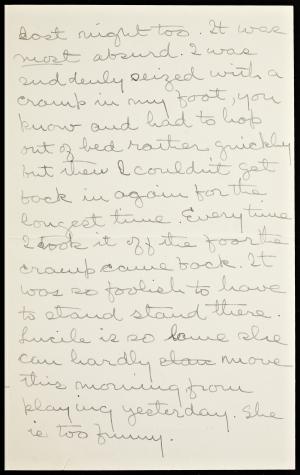 Last night too. It was
most absurd. I was
suddenly seized with a
cramp in my foot, you
know and had to hop
out of bed rather quickly
but then I couldn't get
back in again for the
longest time. Every time
I took it off the floor the
cramp came back. It
was so foolish to have
to stand stand there.
Lucile is so lame she
can hardly move
this morning from
playing yesterday. She
is too funny.